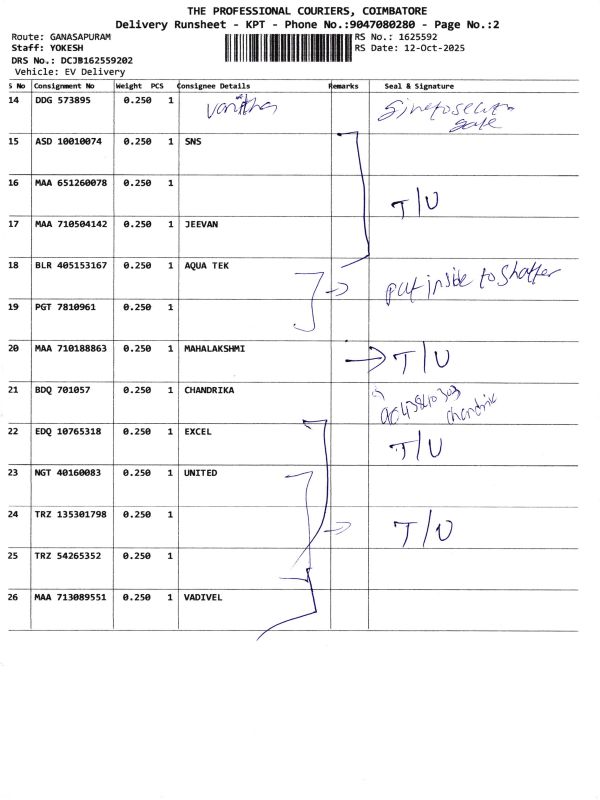 THE PROFESSIONAL COURIERS, COIMBATORE
Delivery Runsheet - KPT - Phone No.:9047080280 - Page No.:2
Route: GANASAPURAM RS No.: 1625592
Staff: YOKESH RS Date: 12-Oct-2025
DRS No.: DCJB162559202
Vehicle: EV Delivery
S No Consignment No Weight PCS Consignee Details Remarks Seal & Signature
14 DDG 573895 0.250 1
15 ASD 10010074 0.250 1 SNS
16 MAA 651260078 0.250 1 T/U
17 MAA 710504142 0.250 1 JEEVAN
18 BLR 405153167 0.250 1 AQUA TEK put inside to Shatter
19 PGT 7810961 0.250 1
20 MAA 710188863 0.250 1 MAHALAKSHMI T/U
21 BDQ 701057 0.250 1 CHANDRIKA
22 EDQ 10765318 0.250 1 EXCEL T/U
23 NGT 40160083 0.250 1 UNITED
24 TRZ 135301798 0.250 1 T/U
25 TRZ 54265352 0.250 1
26 MAA 713089551 0.250 1 VADIVEL